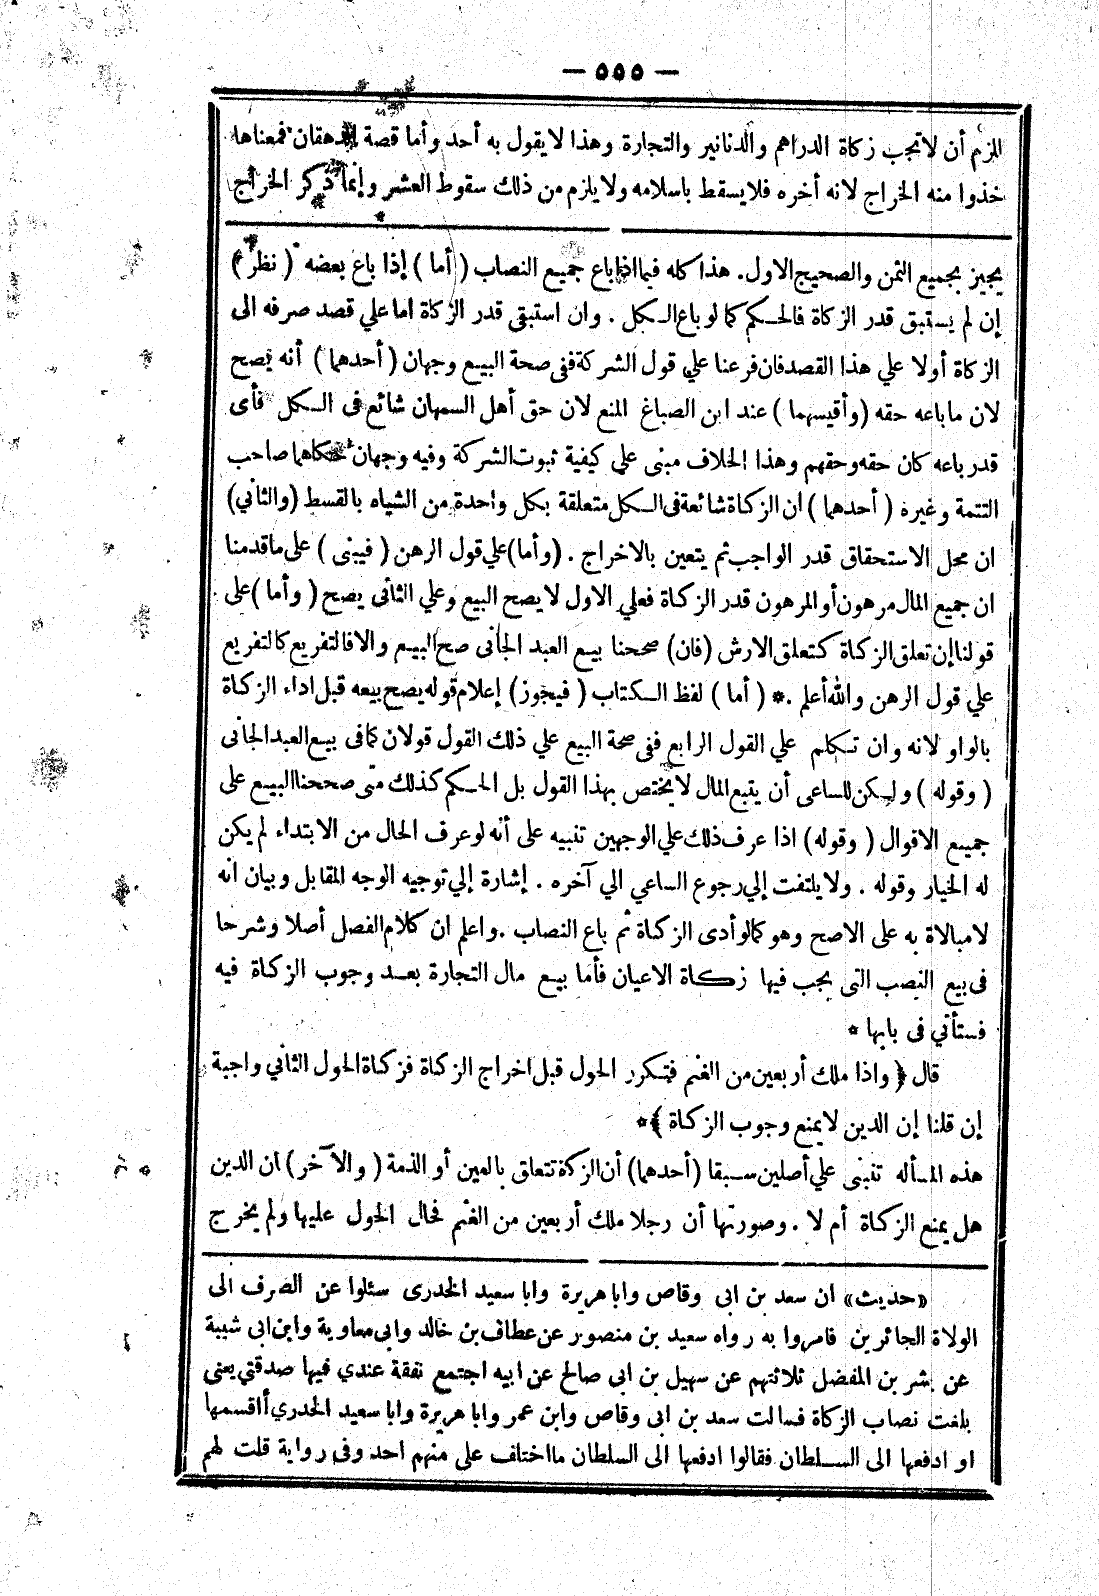 — ٥٥٥ —
للزم أن لا تجب زكاة الدراهم والدنانير والتجارة وهذا لا يقول به أحد وأما قصة الدهقان فمعناها
خذوا منه الخراج لانه أخره فلا يسقط باسلامه ولا يلزم من ذلك سقوط العشر وإنما ذكر الخراج
يجيز بجميع الثمن والصحيح الاول. هذا كله فيما اذا باع جميع النصاب ( أما ) إذا باع بعضه ( نظر )
إن لم يستبق قدر الزكاة فالحكم كما لو باع الكل . وان استبقى قدر الزكاة اما علي قصد صرفه الى
الزكاة أولا علي هذا القصد فان فرعنا علي قول الشركة ففى صحة البيع وجهان ( أحدهما ) أنه يصح
لان ما باعه حقه ( وأقيسهما ) عند ابن الصباغ المنع لان حق أهل السهمان شائع فى الكل فأى
قدر باعه كان حقه وحقهم وهذا الخلاف مبنى علي كيفية ثبوت الشركة وفيه وجهان حكاهما صاحب
التتمة وغيره ( أحدهما ) ان الزكاة شائعة فى الكل متعلقة بكل واحدة من الشياه بالقسط (والثاني)
ان محل الاستحقاق قدر الواجب ثم يتعين بالاخراج . (وأما) علي قول الرهن ( فيبنى ) على ما قدمنا
ان جميع المال مرهون أو المرهون قدر الزكاة فعلي الاول لا يصح البيع وعلي الثانى يصح ( وأما )على
قولنا إن تعلق الزكاة كتعلق الارش (فان) صححنا بيع العبد الجانى صح البيع والا فالتفريع كالتفريع
علي قول الرهن والله أعلم .* ( أما ) لفظ الكتاب ( فيجوز ) إعلام قوله يصح بيعه قبل اداء الزكاة
بالواو لانه وان تكلم علي القول الرابع ففى صحة البيع علي ذلك القول قولان كما فى بيع العبد الجانى
( وقوله ) ولكن للساعى أن يتبع المال لا يختص بهذا القول بل الحكم كذلك متى صححنا البيع على
جميع الاقوال ( وقوله) اذا عرف ذلك علي الوجهين تنبيه على أنه لو عرف الحال من الابتداء لم يكن
له الخيار وقوله . ولا يلتفت إلي رجوع الساعي الي آخره . إشارة إلي توجيه الوجه المقابل وبيان انه
لا مبالاة به على الاصح وهو كما لو أدى الزكاة ثم باع النصاب .واعلم ان كلام الفصل أصلا وشرحا
فى بيع النصب التى يجب فيها زكاة الاعيان فأما بيع مال التجارة بعد وجوب الزكاة فيه
فستأتي فى بابها *
قال ﴿ واذا ملك أربعين من الغنم فتكرر الحول قبل اخراج الزكاة فزكاة الحول الثاني واجبة
إن قلنا إن الدين لا يمنع وجوب الزكاة ﴾*
هذه المسأله تنبنى علي أصلين سبقا (أحدهما) أن الزكاة تتعلق بالعين أو الذمة ( والآخر ) ان الدين
هل يمنع الزكاة أم لا . وصورتها أن رجلا ملك أربعين من الغنم فحال الحول عليها ولم يخرج
«حديث» ان سعد بن ابى وقاص وابا هريرة وابا سعيد الخدرى سئلوا عن الصرف الى
الولاة الجائرين فامروا به رواه سعيد بن منصور عن عطاف بن خالد وابى معاوية وابن ابى شيبة
عن بشر بن المفضل ثلاثتهم عن سهيل بن ابى صالح عن ابيه اجتمع نفقة عندي فيها صدقتي يعنى
بلغت نصاب الزكاة فسالت سعد بن ابى وقاص وابن عمر وابا هريرة وابا سعيد الخدري أاقسمها
او ادفعها الى السلطان فقالوا ادفعها الى السلطان ما اختلف علي منهم احد وفى رواية قلت لهم